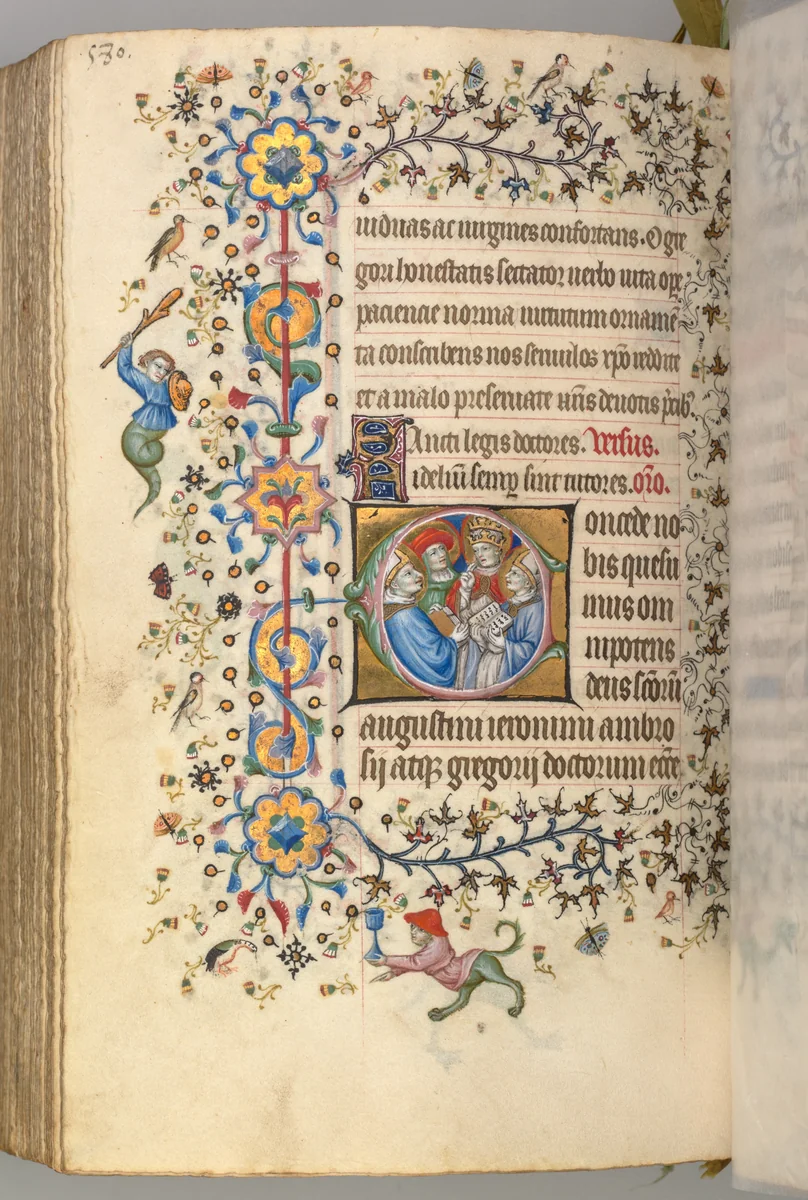 580.
uiduas ac uirgines confortans. O gre
gori honestatis sectator uerbo uita ope
paciencie norma uirtutum orname
ta conscribens nos seruulos xpo reddite
et a malo preseruate uris deuotis p̃cib
Sancti legis doctores. Versus.
Fideliũ semp sint tutores. oro.
Concede no
bis quesu
mus om
nipotens
deus scõrũ
augustini ieronimi ambro
sij atq gregorij doctorum